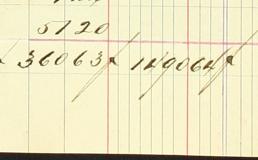 5120
36063 149064